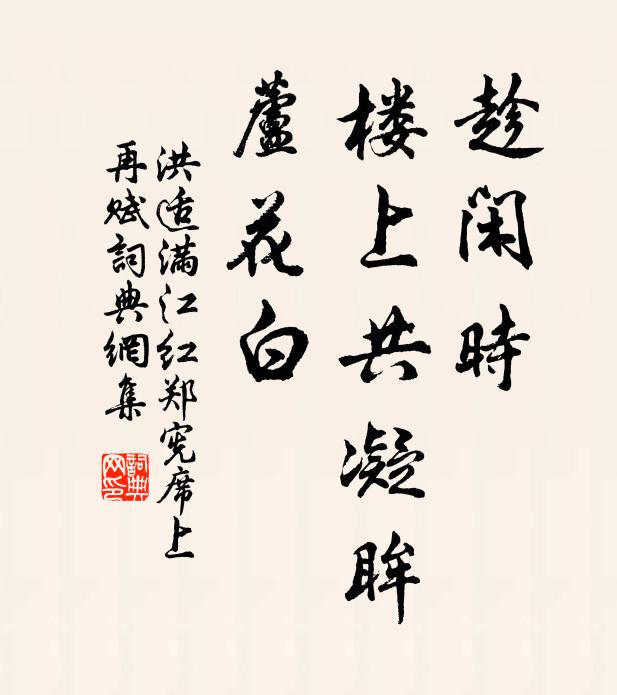 趁闲時
楼上共凝眸
蘆花白
洪适满江红郑宪席上
再赋詞典網集
詞典
网印